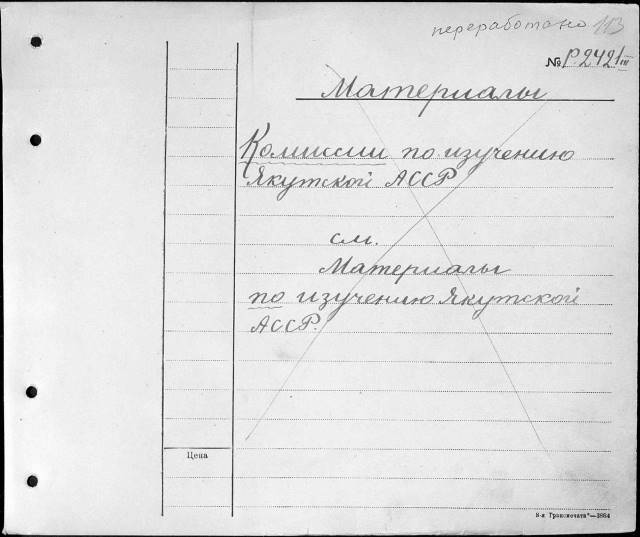 переработано 113
№ Р.2421 III
Материалы
Комиссии по изучению
Якутской АССР
см.
Материалы
по изучению Якутской
АССР.
Цена
8-я „Транспечать“—3864